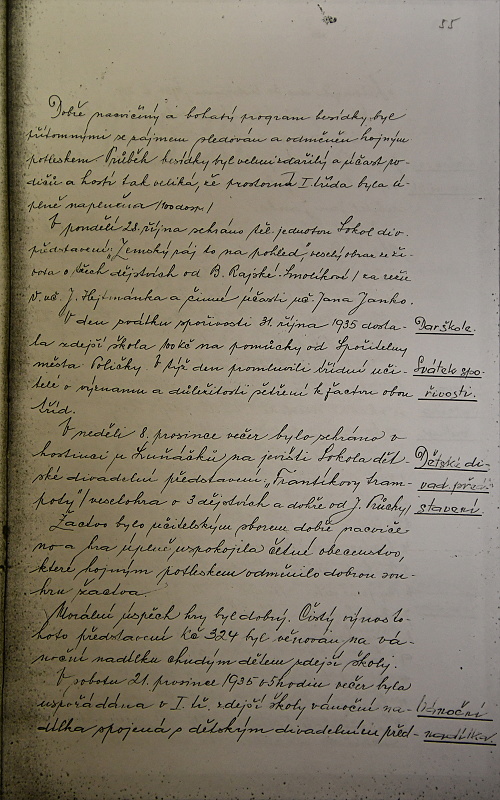 55
Dobře nacvičený a bohatý program besídky byl
přítomnými se zájmem sledován a odměněn hojným
potleskem. Průběh besídky byl velmi zdařilý a účast ro-
dičů a hostí tak veliká, že prostorná I. třída byla ú-
plně naplněna /100 dosp./
V pondělí 28. října sehráno těl. jednotou Sokol div.
představení: "Zemský ráj to na pohled", veselý obraz ze ži-
vota o třech dějstvích od B. Rajské-Smolíkové / za režie
J. Hejtmánka a činné účasti uč. Jana Janko.
V den svátku spořivosti 31. října 1935 dosta- Dar škole.
la zdejší škola 100 Kč na pomůcky od Spořitelny
města Poličky. V týž den promluvili třídní uči- Svátek spo-
telé o významu a důležitosti šetření k žactvu obou řivosti.
tříd.
V neděli 8. prosince večer bylo sehráno v
hostinci u Kuňášků na jevišti Sokola dět- Dětské di-
ské divadelní představení: "Frantíkovy tram- vad. před-
poty" / veselohra o 3 dějstvích a dohře od J. Průchy/ stavení.
Žactvo bylo učitelským sborem dobře nacviče-
no a hra úplně uspokojila četné obecenstvo,
které hojným potleskem odměnilo dobrou sou-
hru žactva.
Morální úspěch hry byl dobrý. Čistý výnos to-
hoto představení Kč 324 byl věnován na vá-
noční nadílku chudým dětem zdejší školy.
V sobotu 21. prosince 1935 v 5 hodin večer byla
uspořádána v I. tř. zdejší školy vánoční na- Vánoční
dílka spojená s dětským divadelním před- nadílka.